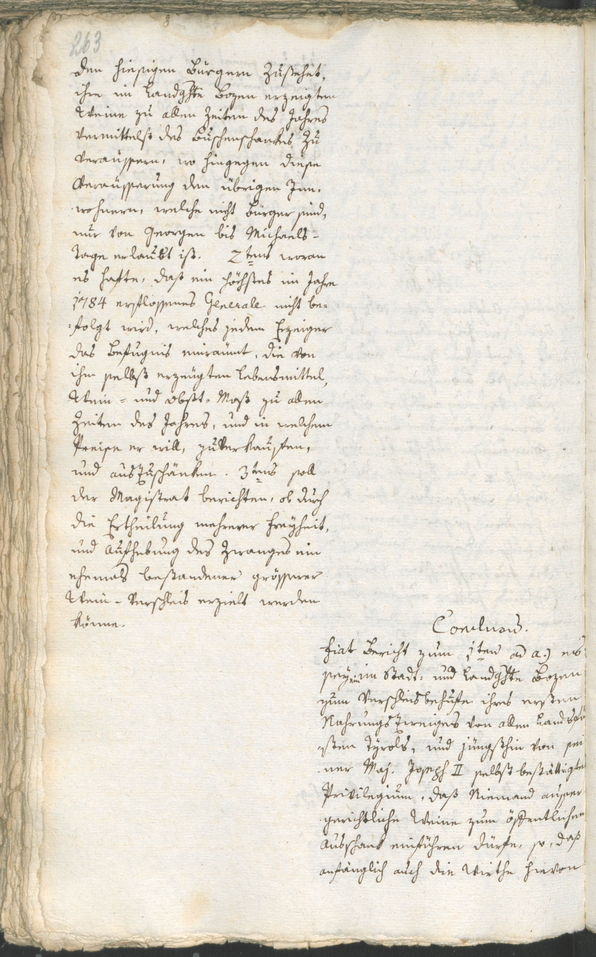 263
den hiesigen Bürgern zustehet,
ihre im Landghte Bozen erzeigten
Weine zu allen Zeiten des Jahres
vermittelst des Buschenschankes zu
veraüssern, wo hingegen diese
Veraüsserung den übrigen Inn,
wohnern, welche nicht Bürger sind,
nur von Georgen bis Michaels-
Tage erlaubt ist. 2tens woran
es hafte, daß ein höchstes im Jahre
1784 erflossenes Generale nicht be-
folgt wird, welches jedem Erzeiger
das Befugniß einraumt, die von
ihm selbst erzeugten Lebensmittel,
Wein- und Obst-Most zu allen
Zeiten des Jahres, und in welchem
Preise er will, zu verkauffen,
und auszuschänken. 3tens soll
der Magistrat berichten, ob durch
die Ertheilung mehrerer Freyheit,
und Aufhebung des Zwanges ein
ehemals bestandener grösserer
Wein-Verschleis erzielt werden
könne.
Conclusum.
Fiat Bericht zum 1ten ad a.) es
seye im Stadt- und Landghte Bozen
zum Verschleisbehufe ihres ersten
Nahrungszweiges von allen Landsfür
sten Tyrols, und jüngsthin von sei
ner Maj. Joseph II selbst bestättigtes
Privilegium, daß Niemand ausser
gerichtliche Weine zum öffentlichen
Ausschank einführen dürfe, so, daß
anfänglich auch die Wirthe hievon